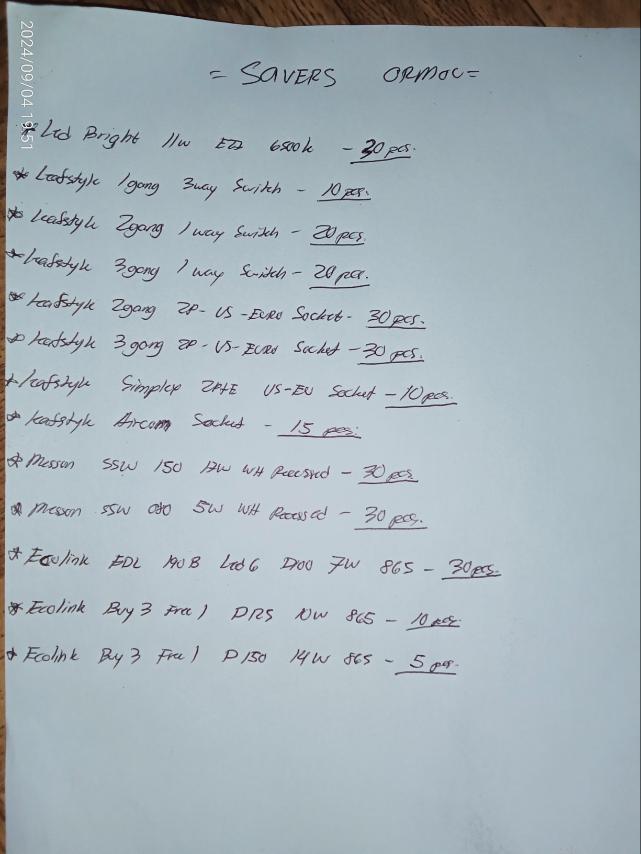 2024/09/04 19:51
= SAVERS ORMOC =
* Led Bright 11w E27 6500k - 30 pcs.
* Leafstyle 1gang 3way Switch - 10 pcs.
* Leafstyle 2gang 1 way Switch - 20 pcs.
* Leafstyle 3gang 1 way Switch - 20 pcs.
* Leafstyle 2gang 2P - US - EURO Socket - 30 pcs.
* Leafstyle 3gang 2P - US - EURO Socket - 30 pcs.
* Leafstyle Simplex 2P+E US-EU Socket - 10 pcs.
* Leafstyle Aircon Socket - 15 pcs.
* Meson SSW 150 17W WH Recessed - 30 pcs
* Meson SSW 080 5W WH Recessed - 30 pcs.
* Ecolink EDL 190B Led6 D100 7W 865 - 30 pcs.
* Ecolink Buy 3 Free 1 D125 10W 865 - 10 pcs.
* Ecolink Buy 3 Free 1 D150 14W 865 - 5 pcs.